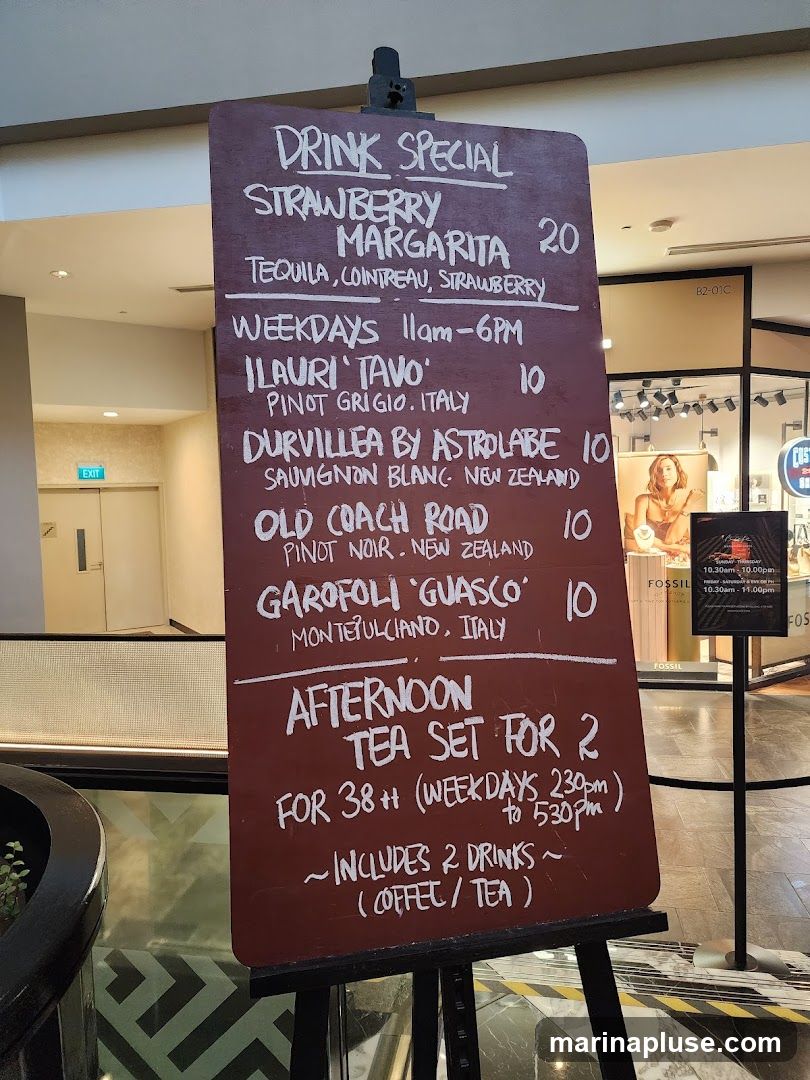 DRINK SPECIAL
STRAWBERRY
MARGARITA 20
TEQUILA, COINTREAU, STRAWBERRY
WEEKDAYS 11am - 6PM
ILAURI 'TAVO' 10
PINOT GRIGIO. ITALY
DURVILLEA BY ASTROLABE 10
SAUVIGNON BLANC. NEW ZEALAND
OLD COACH ROAD 10
PINOT NOIR. NEW ZEALAND
GAROFOLI 'GUASCO' 10
MONTEPULCIANO, ITALY
AFTERNOON
TEA SET FOR 2
FOR 38++ (WEEKDAYS 230pm
to 530pm)
~ INCLUDES 2 DRINKS ~
(COFFEE / TEA)
B2-01C
EXIT
FOSSIL
FOSSIL
SUNDAY - THURSDAY
10.30am - 10.00pm
FRIDAY - SATURDAY & EVE OF PH
10.30am - 11.00pm
marinapluse.com